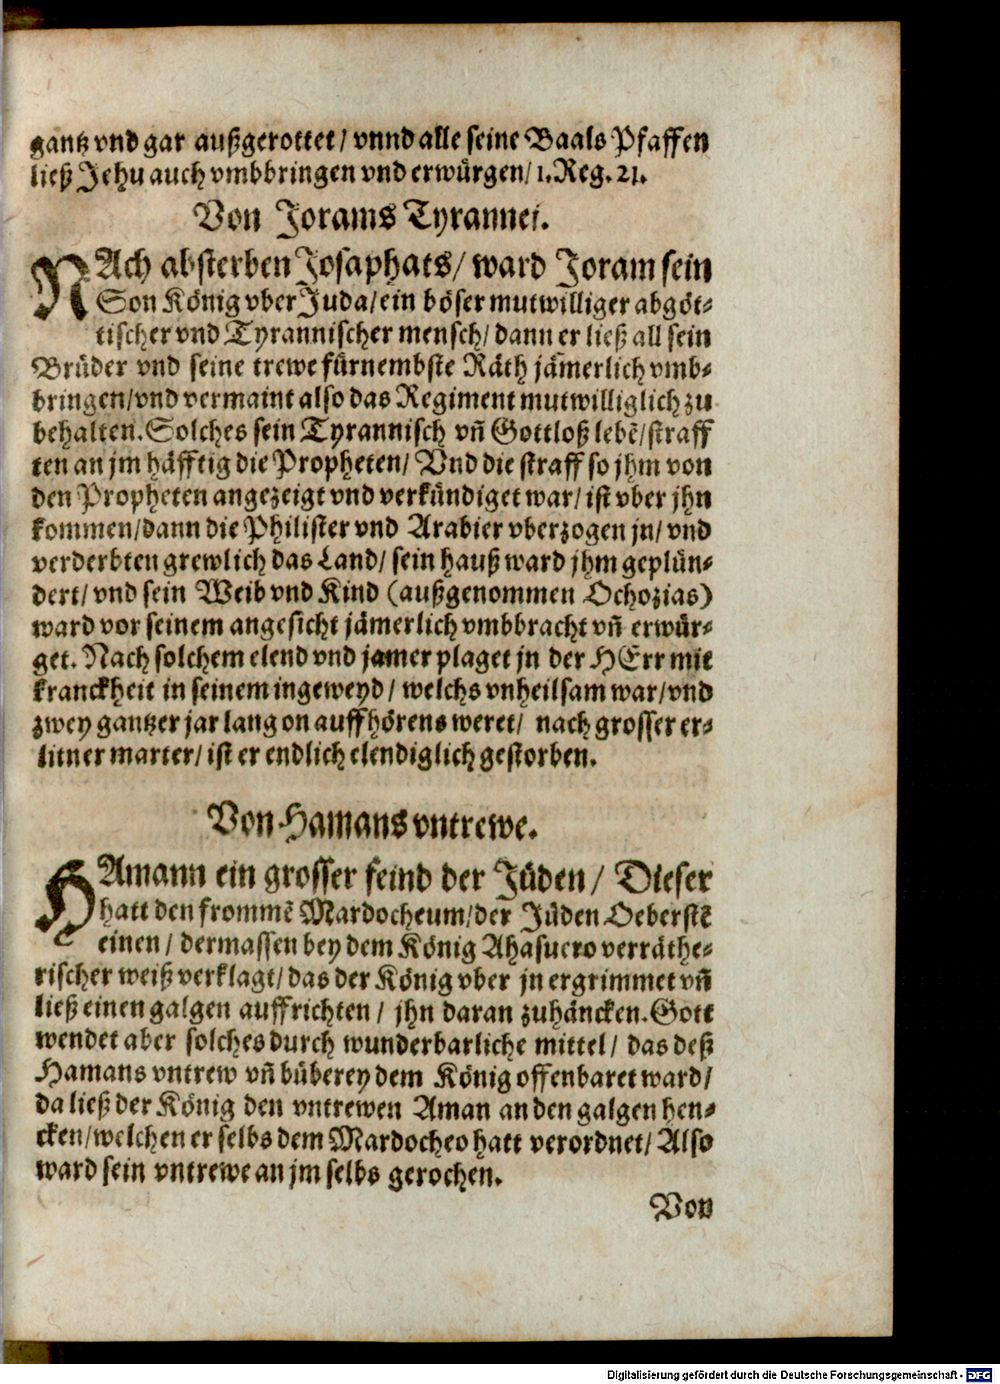 gantz vnd gar außgerottet / vnnd alle seine Baals Pfaffen
ließ Jehu auch vmbbringen vnd erwürgen / 1. Reg. 21.
Von Jorams Tyrannei.
NAch absterben Josaphats / ward Joram sein
Son König vber Juda / ein böser mutwilliger abgöt-
tischer vnd Tyrannischer mensch / dann er ließ all sein
Brüder vnd seine trewe fürnembste Räth jämerlich vmb-
bringen / vnd vermaint also das Regiment mutwilliglich zu
behalten. Solches sein Tyrannisch vñ Gottloß lebē / straff
ten an jm häfftig die Propheten / Vnd die straff so jhm von
den Propheten angezeigt vnd verkündiget war / ist vber jhn
kommen / dann die Philister vnd Arabier vberzogen jn / vnd
verderbten grewlich das Land / sein hauß ward jhm geplün-
dert / vnd sein Weib vnd Kind (außgenommen Ochozias)
ward vor seinem angesicht jämerlich vmbbracht vñ erwür-
get. Nach solchem elend vnd jamer plaget jn der HErr mit
kranckheit in seinem ingeweyd / welchs vnheilsam war / vnd
zwey gantzer jar lang on auffhörens weret / nach grosser er-
litner marter / ist er endlich elendiglich gestorben.
Von Hamans vntrewe.
HAmann ein grosser feind der Jüden / Dieser
hatt den frommē Mardocheum / der Jüden Oeberstē
einen / dermassen bey dem König Ahasuero verräthe-
rischer weiß verklagt / das der König vber jn ergrimmet vñ
ließ einen galgen auffrichten / jhn daran zuhäncken. Gott
wendet aber solches durch wunderbarliche mittel / das deß
Hamans vntrew vñ büberey dem König offenbaret ward /
da ließ der König den vntrewen Aman an den galgen hen-
cken / welchen er selbs dem Mardocheo hatt verordnet / Also
ward sein vntrewe an jm selbs gerochen.
Von
Digitalisierung gefördert durch die Deutsche Forschungsgemeinschaft - DFG